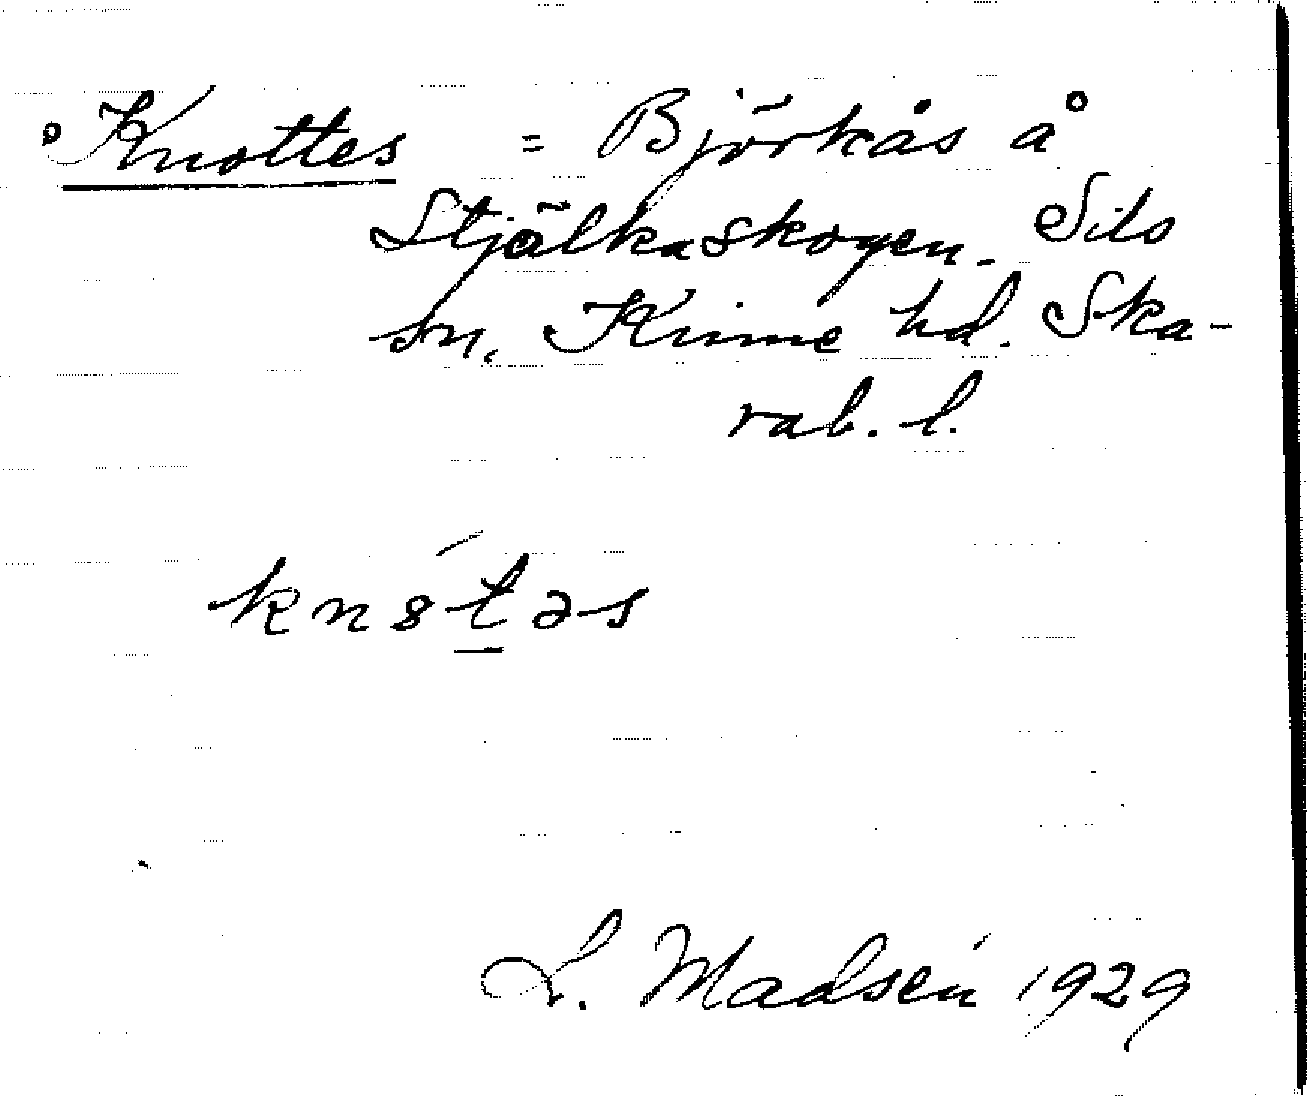 Knottes = Björkås å
Stjälkaskogen. Sils
sn. Kinne hd. Ska-
rab. l.
kn8́t̲əs
L. Madsén 1929